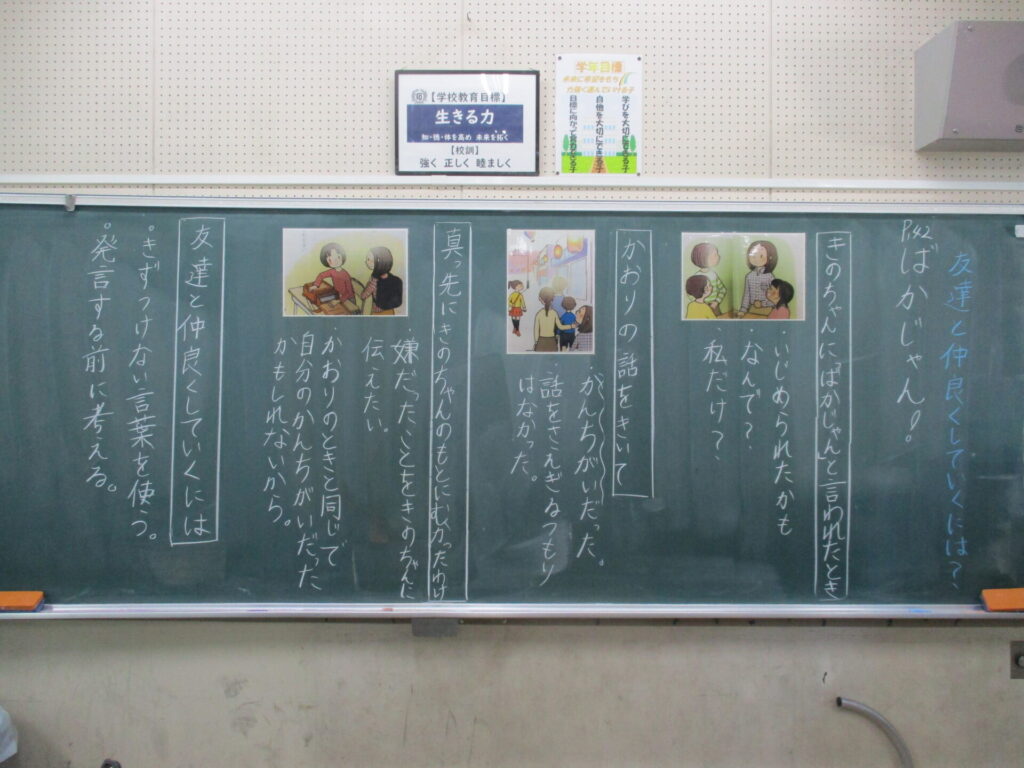 【学校教育目標】
生きる力
知・徳・体を高め 未来を拓く
【校訓】
強く 正しく 睦ましく
学年目標
学びを大切にできる子
自他を大切にできる子
友達と仲良くしていくには?
P42
ばかじゃん!
きのちゃんに「ばかじゃん」と言われたとき
・いじめられたかも
・なんで?
・私だけ?
かおりの話をきいて
・かんちがいだった。
・話をさえぎるつもり
はなかった。
真っ先にきのちゃんのもとにむかったわけ
・嫌だったことをきのちゃんに
伝えたい。
・かおりのときと同じで
自分のかんちがいだった
かもしれないから。
友達と仲良くしていくには
。きずつけない言葉を使う。
。発言する前に考える。